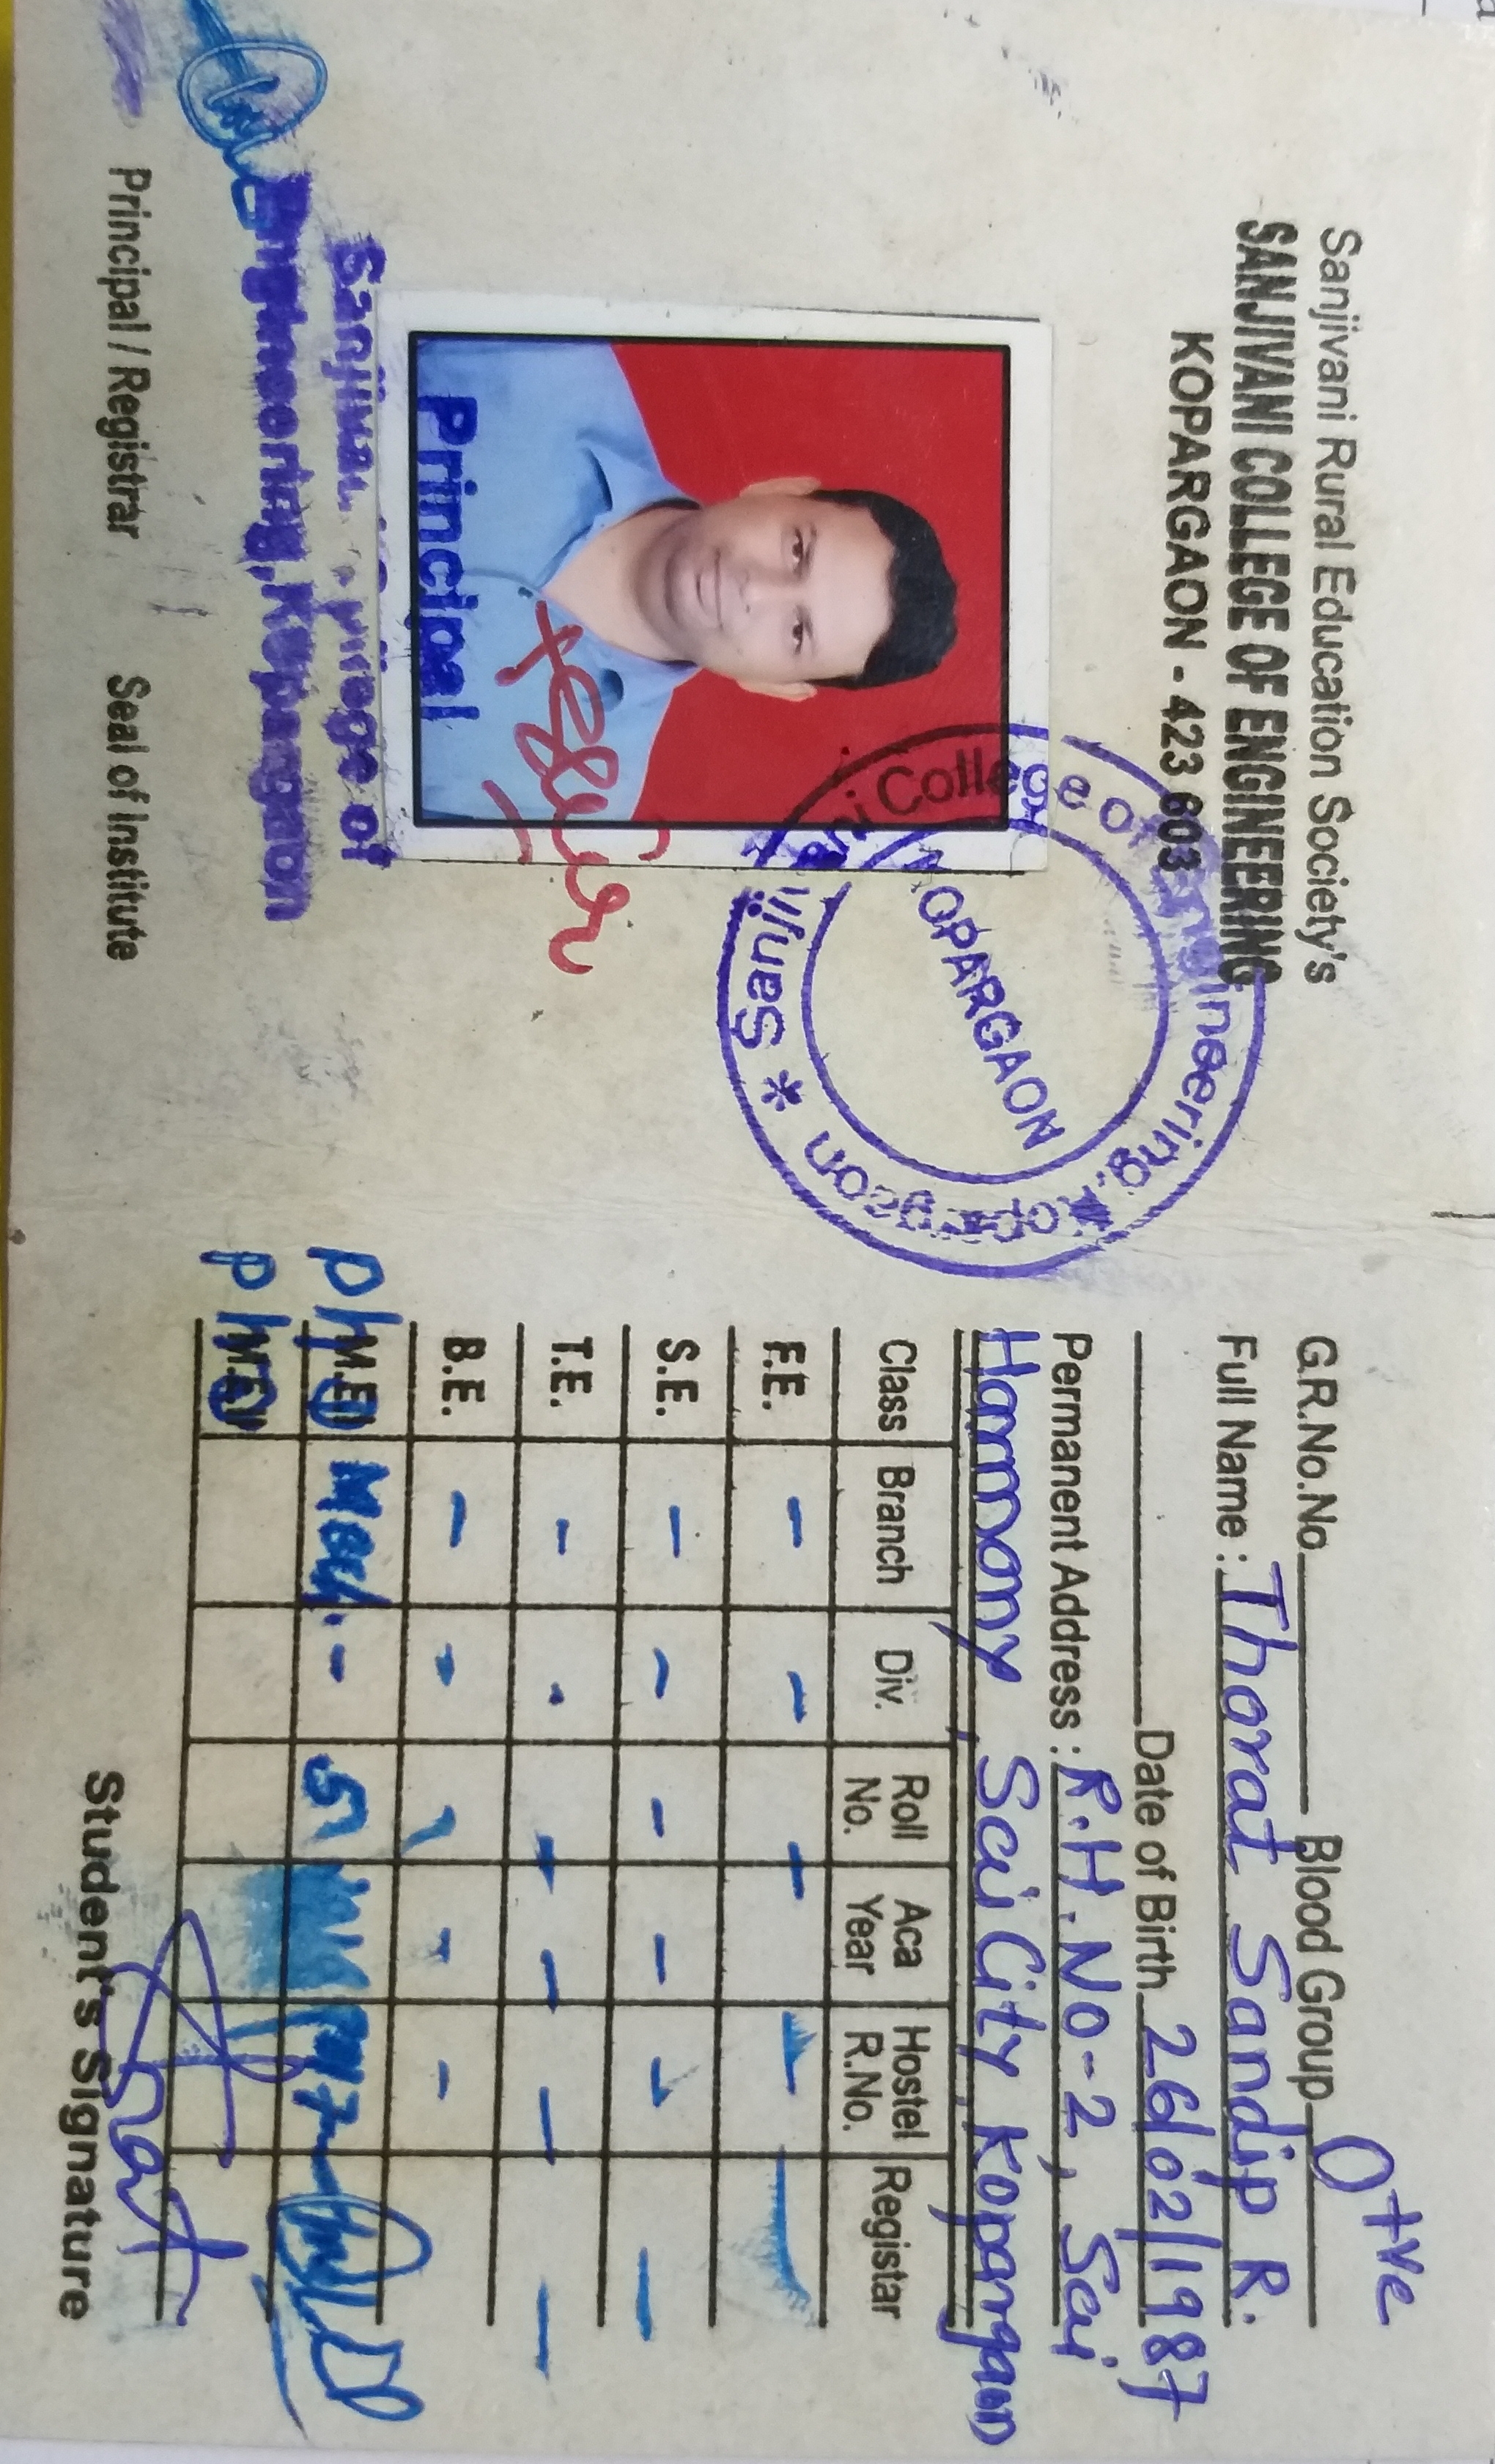 Sanjivani Rural Education Society's
SANJIVANI COLLEGE OF ENGINEERING
KOPARGAON - 423 603
College of Engineering, Kopargaon * Sanji
KOPARGAON
Principal
Sanjivani College of
Engineering, Kopargaon
Principal / Registrar Seal of Institute
G.R.No.No. Blood Group O+ve
Full Name : Thorat Sandip R.
Date of Birth 26/02/1987
Permanent Address : R.H.NO-2, Sai
Harmony, Sai City, Kopargaon
Class Branch Div. Roll No. Aca Year Hostel R.No. Registar
F.E. - - - - -
S.E. - - - - - -
T.E. - - - - - -
B.E. - - - -
PhD M.E.I Mech. - 5
PhD M.E.II
Student's Signature